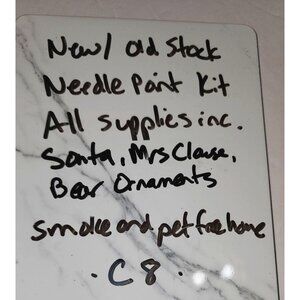 New/ old stock
Needle Point Kit
All supplies inc.
Santa, Mrs Clause,
Bear Ornaments
smoke and pet free home
. C 8 .